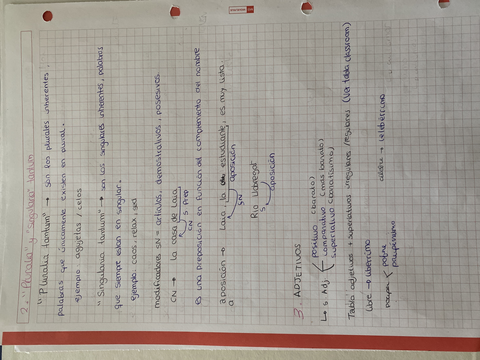 2. "Pluralia" y "singularia" tantum
"Pluralia tantum" → son los plurales inherentes,
palabras que únicamente existen en plural.
ejemplo: agujetas / celos
"Singularia tantum" → son los singulares inherentes, palabras
que siempre estan en singular.
ejemplo: caos, relax, sed
modificadores SN = artículos, demostrativos, posesivos.
CN → la casa de Lara
CN S Prep
es una preposición en función de complemento del nombre
aposición → Lara, la estudiante, es muy lista
SN aposición
Río Llobregat
S aposición
3. ADJETIVOS
↳ S. Adj
positivo (barato)
comparativo (más barato)
superlativo (baratísimo)
Tabla adjetivos + superlativos irregulares / regulares (ver tabla classroom)
libre → libérrimo
célebre → celebérrimo
pobre
paupérrimo